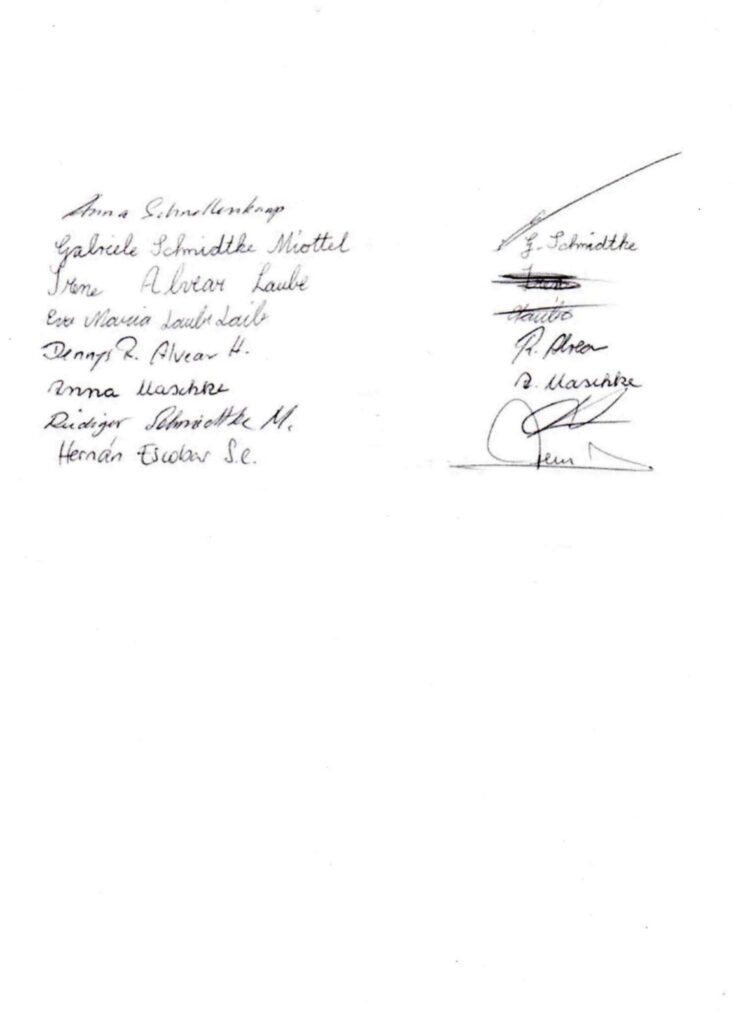 Anna Schnellenkamp
Gabriele Schmidtke Miottel G. Schmidtke
Irene Alvear Laube Irene
Eva Maria Laube Laib Laube
Dennys R. Alvear H. R. Alvear
Anna Maschke A. Maschke
Rüdiger Schmidtke M.
Hernán Escobar S.e.